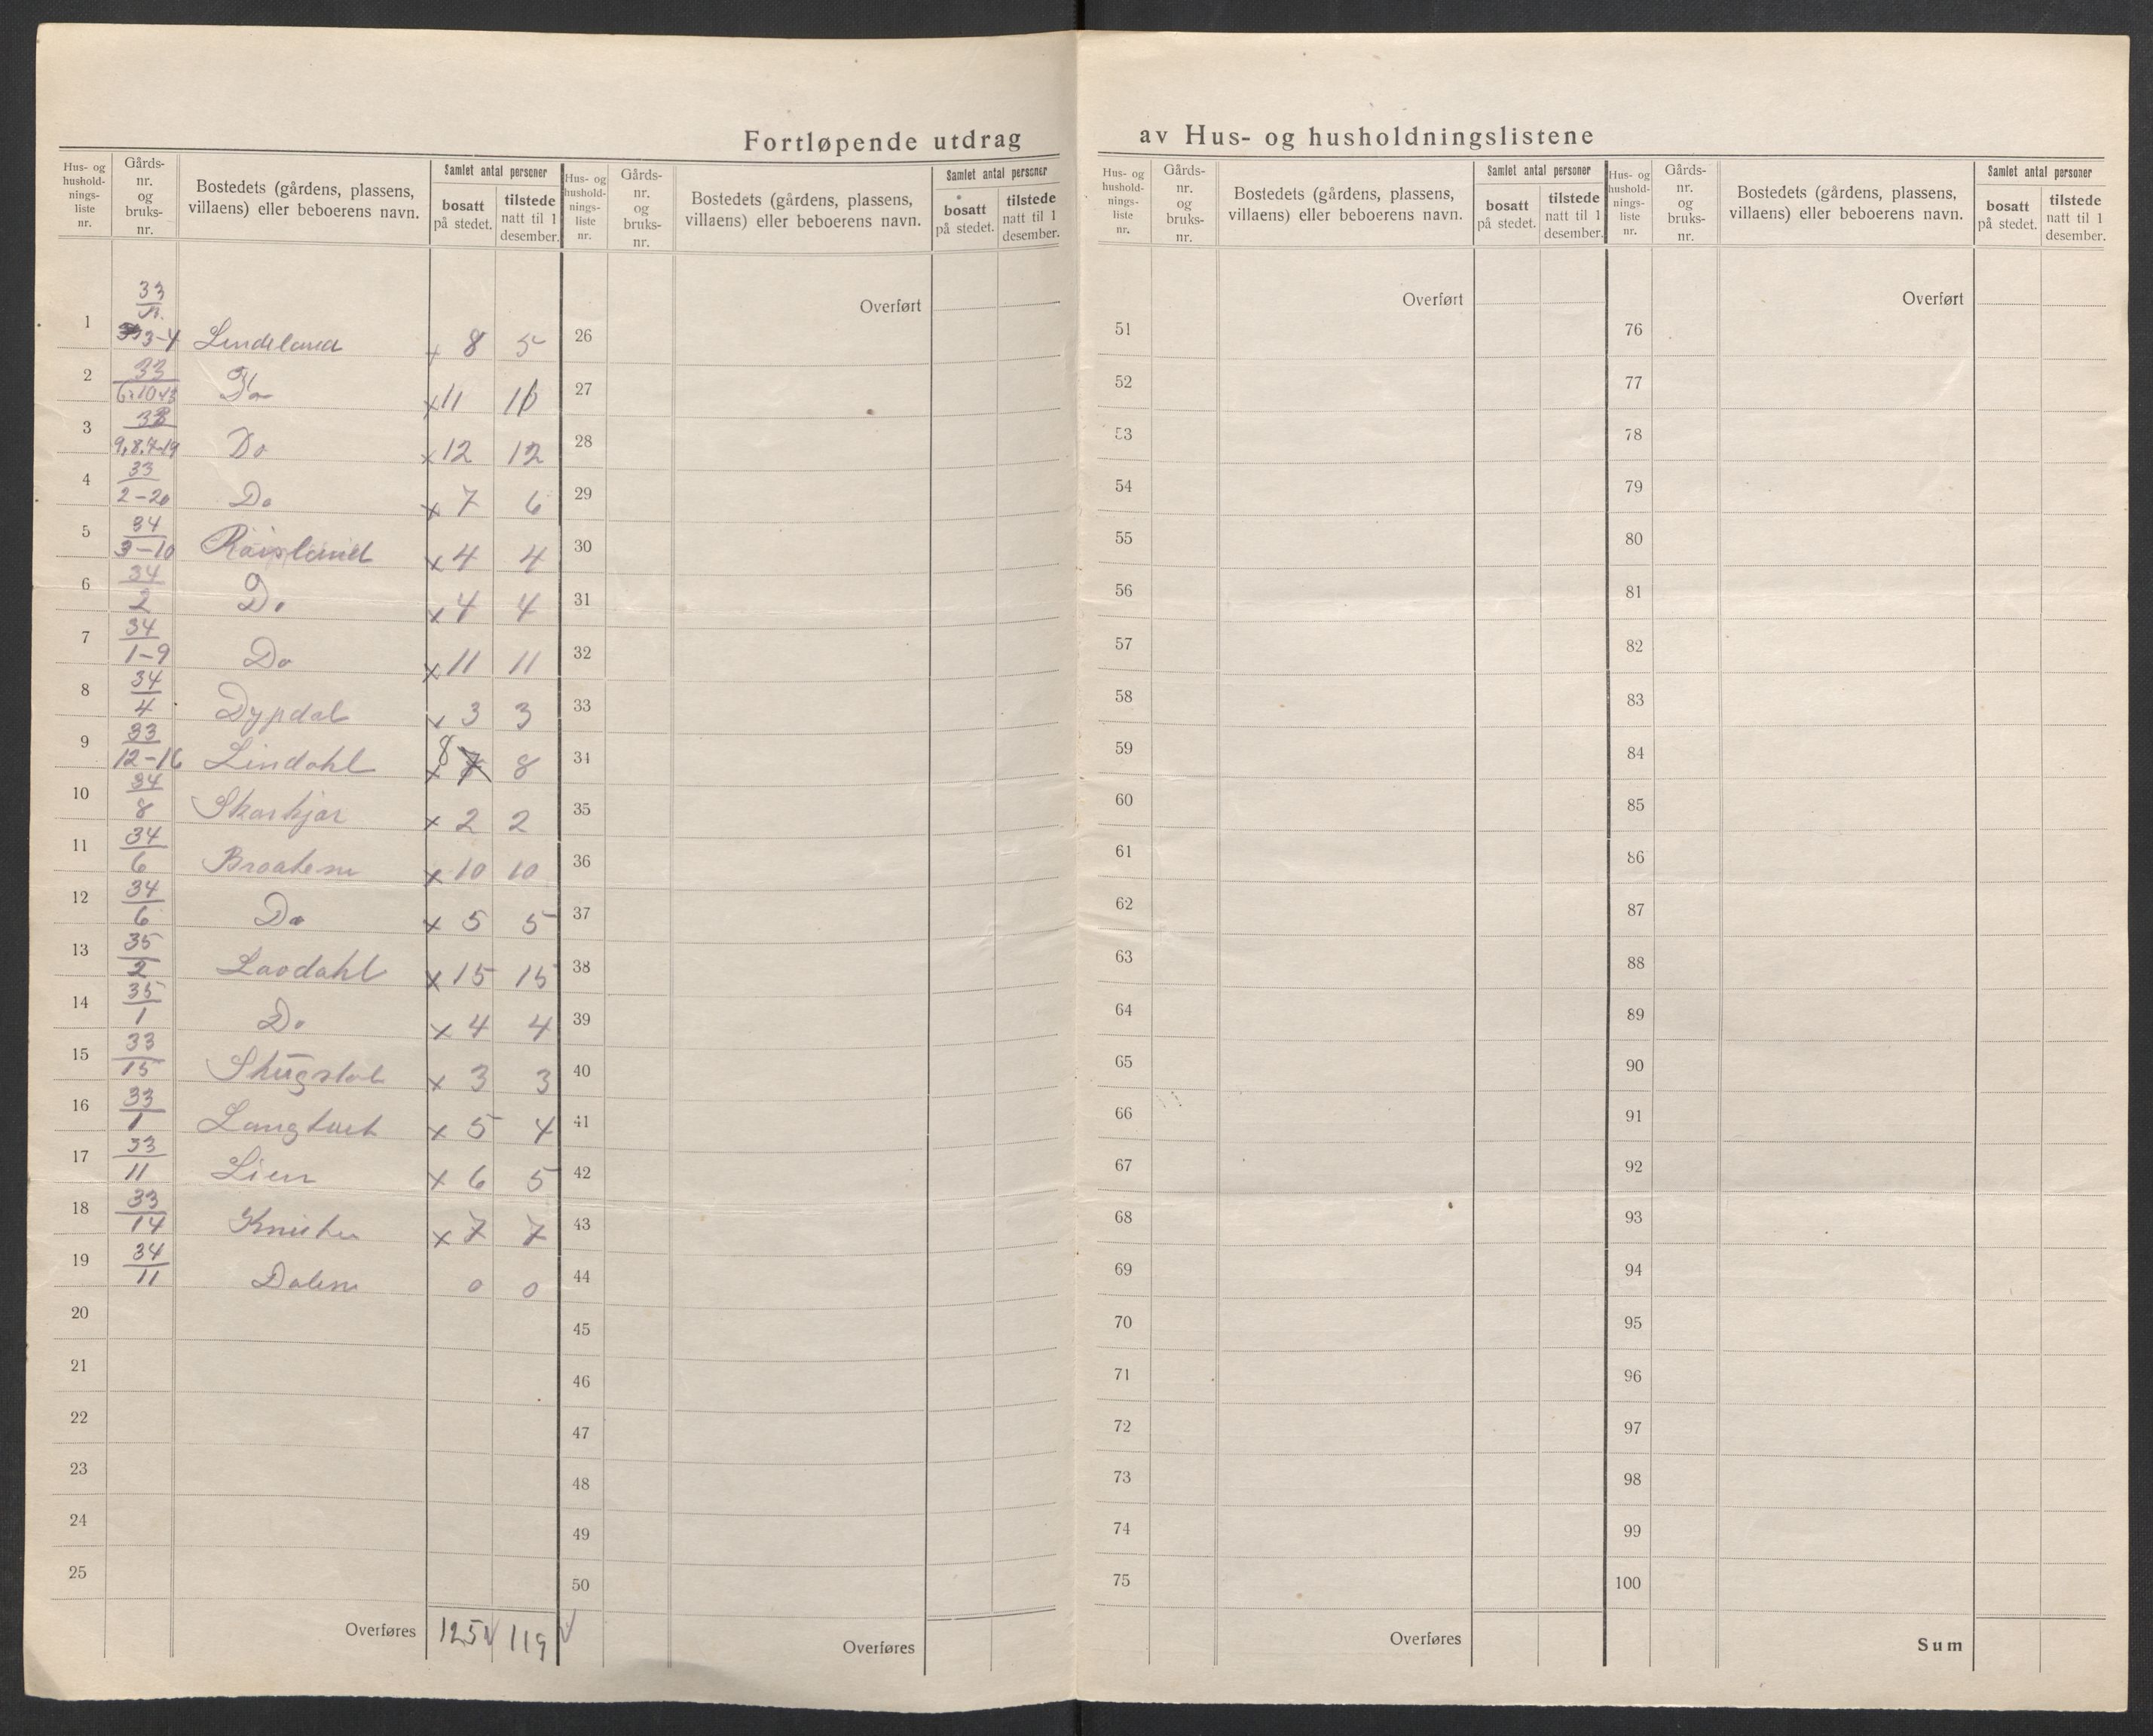 Fortløpende utdrag av Hus- og husholdningslistene
Hus- og hushold- nings- liste nr. Gårds- nr. og bruks- nr. Bostedets (gårdens, plassens, villaens) eller beboerens navn. Samlet antal personer bosatt på stedet. tilstede natt til 1 desember.
Hus- og hushold- nings- liste nr. Gårds- nr. og bruks- nr. Bostedets (gårdens, plassens, villaens) eller beboerens navn. Samlet antal personer bosatt på stedet. tilstede natt til 1 desember.
Hus- og hushold- nings- liste nr. Gårds- nr. og bruks- nr. Bostedets (gårdens, plassens, villaens) eller beboerens navn. Samlet antal personer bosatt på stedet. tilstede natt til 1 desember.
Hus- og hushold- nings- liste nr. Gårds- nr. og bruks- nr. Bostedets (gårdens, plassens, villaens) eller beboerens navn. Samlet antal personer bosatt på stedet. tilstede natt til 1 desember.
1 33 3-4 Lindeland x 8 5
2 33 Do x 11 10
3 33 9,8.7-19 Do x 12 12
4 33/2-20 Do x 7 6
5 34/3-10 x 4 4
6 34/2 Do x 4 4
7 34/1-9 Do x 11 11
8 34/4 Dypdal x 3 3
9 33/12-16 Lindahl x 8 7 8
10 34/8 Skarkjær x 2 2
11 34/6 Braatene x 10 10
12 34/6 Do x 5 5
13 35/2 Laodahl x 15 15
14 35/1 Do x 4 4
15 33/15 x 3 3
16 33/1 x 5 4
17 33/11 Lien x 6 5
18 33/14 x 7 7
19 34/11 Dalene 0 0
20
21
22
23
24
25
Overføres 125 119
Overført
26
27
28
29
30
31
32
33
34
35
36
37
38
39
40
41
42
43
44
45
46
47
48
49
50
Overføres
Overført
51
52
53
54
55
56
57
58
59
60
61
62
63
64
65
66
67
68
69
70
71
72
73
74
75
Overføres
Overført
76
77
78
79
80
81
82
83
84
85
86
87
88
89
90
91
92
93
94
95
96
97
98
99
100
Sum